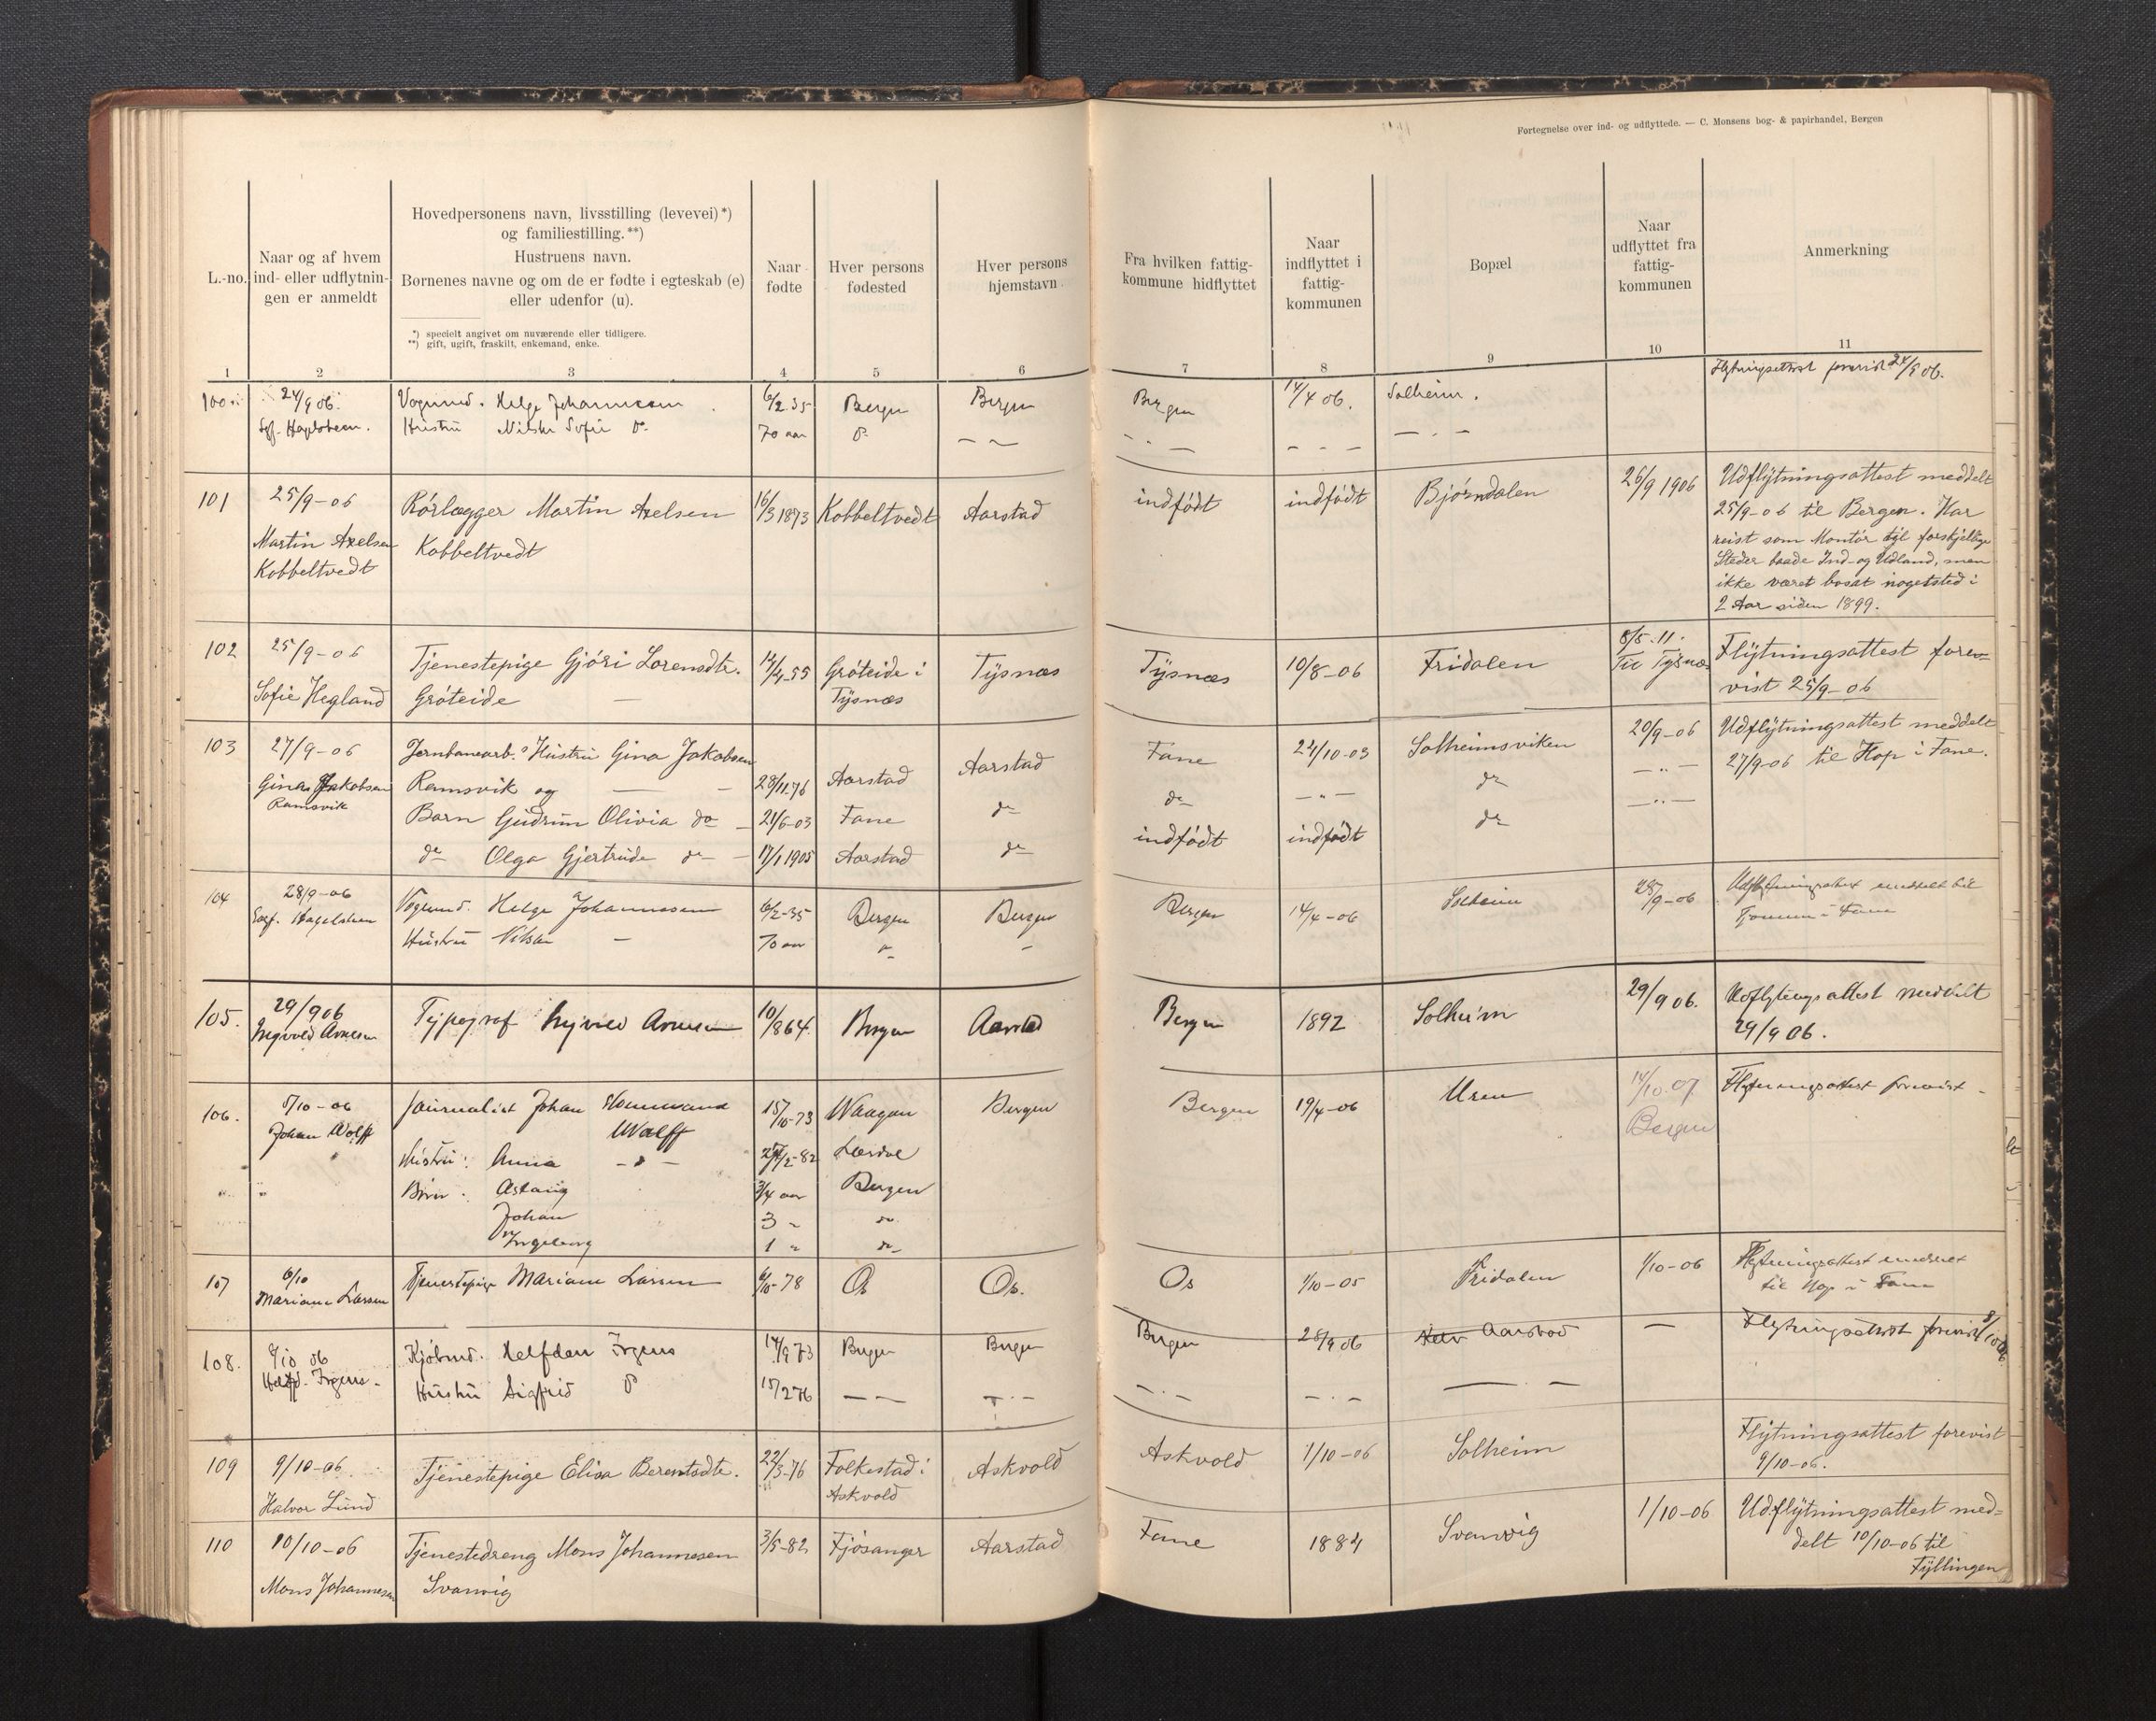 Fortegnelse over ind- og udflyttede. — C. Monsens bog- & papirhandel, Bergen
L.-no.
Naar og af hvem
ind- eller udflytnin-
gen er anmeldt
Hovedpersonens navn, livsstilling (levevei)*)
og familiestilling.**)
Hustruens navn.
Børnenes navne og om de er fødte i egteskab (e)
eller udenfor (u).
*) specielt angivet om nuværende eller tidligere.
**) gift, ugift, fraskilt, enkemand, enke.
Naar
fødte
Hver persons
fødested
Hver persons
hjemstavn
Fra hvilken fattig-
kommune hidflyttet
Naar
indflyttet i
fattig-
kommunen
Bopæl
Naar
udflyttet fra
fattig-
kommunen
Anmerkning
1 2 3 4 5 6 7 8 9 10 11
100 24/9 06. Vognmd. Helge Johannesen 6/2 35 Bergen Bergen Bergen 14/4 06. Solheim. Flytningsattest forevist 24/9 06.
Hustru Sofie do 70 aar do
101 25/9-06 Rörlægger Martin Axelsen 16/3 1873 Kobbeltvedt Aarstad indfødt indfødt Bjørndalen 26/9 1906 Udflytningsattest meddelt
25/9-06 til Bergen. Har
Martin Axelsen Kobbeltvedt reist som Montör til forskjellige
Kobbeltvedt Steder baade Ind- og Udland, men
ikke været bosat nogetsted i
2 Aar siden 1899.
102 25/9-06 Tjenestepige Gjöri Lorensdtr. 14/4-55 Gröteide i Tysnæs Tysnæs 10/8-06 Fridalen 8/5.11. Flytningsattest fore-
Til Tysnæs
Sofie Hegland Gröteide — Tysnæs vist 25/9-06
103 27/9-06 Jernbanearb.s Hustru Gina Jakobsen Aarstad Fane 24/10-03 Solheimsviken 20/9-06 Udflytningsattest meddelt
Gina Jakobsen Ramsvik og — 28/11-76 Aarstad do — " — do — " — 27/9-06 til Hop i Fane.
Ramsvik
Barn Gudrun Olivia do — 21/6-03 Fane do do — " —
do Olga Gjertrude do — 17/1 1905 Aarstad do indfødt indfødt do
104 28/9-06 Vognmd. Helge Johannesen 6/2-35 Bergen Bergen Bergen 14/4-06 Solheim 28/9-06 Udflytningsattest meddelt til
Hagelsteen Hustru — 70 aar " — i Fane
105. 29/9 06 Typograf Ingvald Arnesen 10/8 64. Bergen Aarstad Bergen 1892 Solheim 29/9 06. Udflytningsattest meddelt
Arnesen 29/9 06.
106. 5/10-06 Journalist Johan 15/10-73 Waagan Bergen Bergen 19/4-06 Uren 14/10.07 Flytningsattest forevist
Johan Wolff Wolff Bergen
Hustru: Anna — " — Lærdal
Børn: Aslaug 3/4 aar Bergen
Johan 3 " do
Ingeborg 1 " do
107 6/10 Tjenestepige Mariane Larsen 6/10-78 Os Os. Os 1/10-05 Fridalen 1/10-06 Flytningsattest meddelt
Mariane Larsen til Hop i Fane
108. 9/10 06 Kjøbmd. Halfdan Irgens 14/9 73 Bergen Bergen Bergen 28/9 06 Aarstad — Flytningsattest forevist 8/10 06
Halfd. Irgens. Hustru Sigfrid do 15/2 76 — — — . — — . — — . — — —
109 9/10-06 Tjenestepige Elisa Berentsdtr. 22/3-76 Folkestad i Askvold Askvold 1/10-06 Solheim Flytningsattest forevist
Halvor Lund Askvold 9/10-06.
110 10/10-06 Tjenestedreng Mons Johannesen 3/5-82 Fjösanger Aarstad Fane 1884 Svanvig 1/10-06 Udflytningsattest med-
Mons Johannesen Svanvig delt 10/10-06 til
Fyllingen